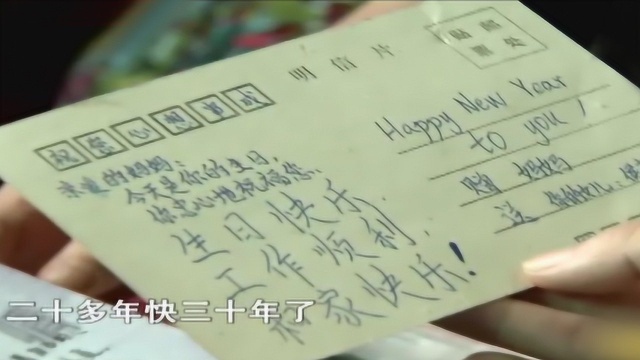 明信片
贴邮
票处
祝您心想事成
亲爱的妈妈:
今天是你的生日,
你忠心地祝福您..
生日快乐,
工作顺利,
和家快乐!
Happy New Year
to you!
赠 妈妈
送
二十多年快三十年了